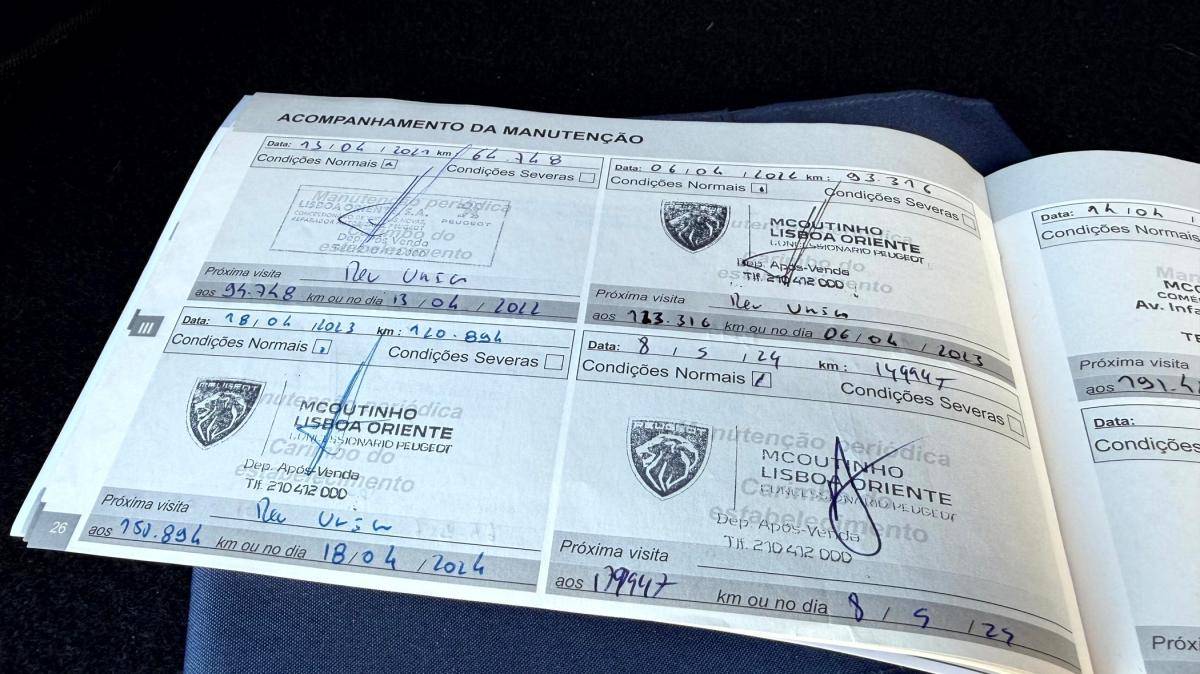 ACOMPANHAMENTO DA MANUTENÇÃO
Data: 13/04/2021 km 64.748
Condições Normais Condições Severas
Manutenção periódica
LISBOA S.A.
PEUGEOT
Carimbo do
Dep. Após Venda
estabelecimento
Próxima visita Rev Unica
aos 94.748 km ou no dia 13/04/2022
Data: 06/04/2022 km: 93.316
Condições Normais Condições Severas
MCOUTINHO
LISBOA ORIENTE
CONCESSIONARIO PEUGEOT
Dep. Após-Venda
Tlf. 210 412 000
estabelecimento
Próxima visita Rev Unica
aos 123.316 km ou no dia 06/04/2023
III
Data: 18/04/2023 km: 120.894
Condições Normais Condições Severas
Manutenção periódica
PEUGEOT
MCOUTINHO
LISBOA ORIENTE
CONCESSIONARIO PEUGEOT
Carimbo do
Dep. Após-Venda
estabelecimento
Tlf. 210 412 000
Próxima visita Rev Unica
aos 150.894 km ou no dia 18/04/2024
26
Data: 8/5/24 km: 149947
Condições Normais Condições Severas
Manutenção periódica
PEUGEOT
MCOUTINHO
LISBOA ORIENTE
CONCESSIONARIO PEUGEOT
Carimbo do
estabelecimento
Dep. Após-Venda
Tlf. 210 412 000
Próxima visita
aos 179947 km ou no dia 8/5/25
Data: 14/04/
Condições Normais
Av. Infa
Próxima visita
aos 191.4
Data:
Condições
Próxi